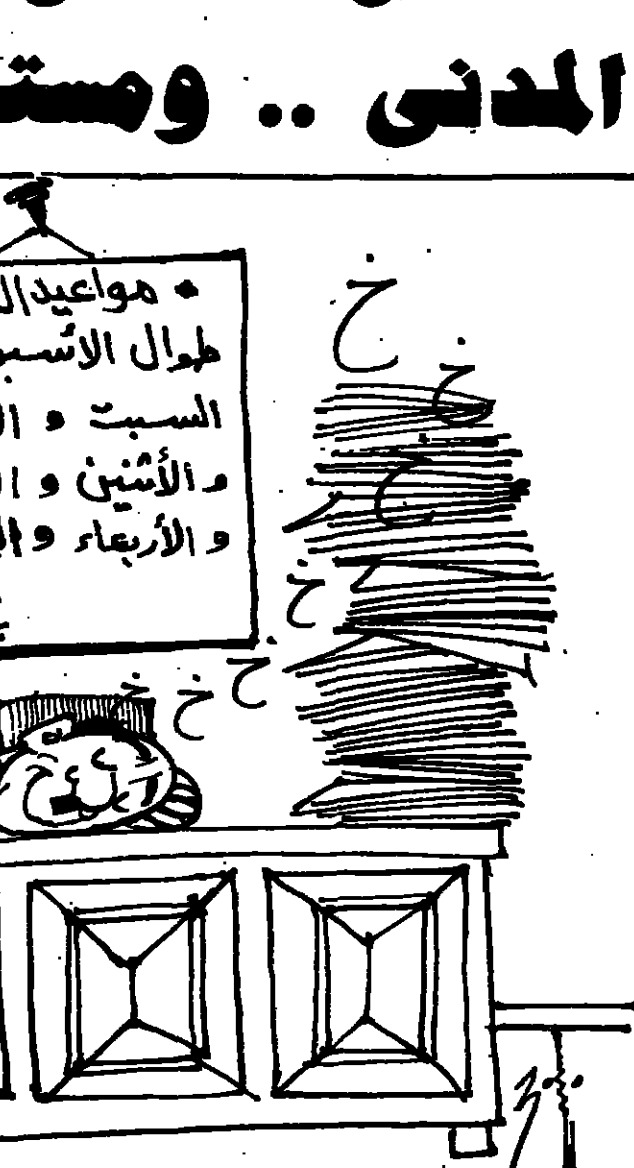 المدنى .. ومستـ
• مواعيد الـ
طوال الأسبو
السبت و الـ
و الأثنين و الـ
و الأربعاء و الـ
خ
خ
خ
خ
خ
خ
خ